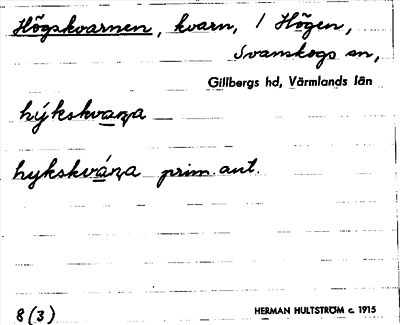 Högskvarnen, kvarn, / Högen,
Svanskogs sn,
Gillbergs hd, Värmlands län
hýkskvaṇa
hykskváṇa prim. aut.
8 (3)
HERMAN HULTSTRÖM c. 1915